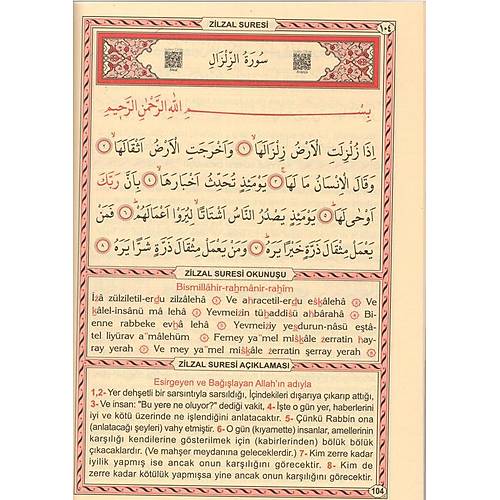 ZİLZAL SURESİ
١٠٤
سُورَةُ الزِّلْزَالِ
بِسْــــمِ اللّٰهِ الرَّحْمٰنِ الرَّحِيمِ
اِذَا زُلْزِلَتِ الْاَرْضُ زِلْزَالَهَا ۙ ١ وَاَخْرَجَتِ الْاَرْضُ اَثْقَالَهَا ۙ ٢
وَقَالَ الْاِنْسَانُ مَا لَهَا ۚ ٣ يَوْمَئِذٍ تُحَدِّثُ اَخْبَارَهَا ۙ ٤ بِاَنَّ رَبَّكَ
اَوْحٰى لَهَا ۜ ٥ يَوْمَئِذٍ يَصْدُرُ النَّاسُ اَشْتَاتًا ۙ لِيُرَوْا اَعْمَالَهُمْ ۜ ٦ فَمَنْ
يَعْمَلْ مِثْقَالَ ذَرَّةٍ خَيْرًا يَرَهُ ۜ ٧ وَمَنْ يَعْمَلْ مِثْقَالَ ذَرَّةٍ شَرًّا يَرَهُ ٨
ZİLZAL SURESİ OKUNUŞU
Bismillâhir-rahmânir-rahîm
İzâ zülziletil-erdu zilzâlehâ 1 Ve ahracetil-erdu eskâlehâ 2 Ve
kâlel-insânü mâ lehâ 3 Yevmeizin tühaddisü ahbârahâ 4 Bi-
enne rabbeke evhâ lehâ 5 Yevmeiziy yesdurun-nâsü eştâ-
tel liyürav a'mâlehüm 6 Femey ya'mel miskâle zerratin hay-
ray yerah 7 Ve mey ya'mel miskâle zerratin şerray yerah 8
ZİLZAL SURESİ AÇIKLAMASI
Esirgeyen ve Bağışlayan Allah'ın adıyla
1,2- Yer dehşetli bir sarsıntıyla sarsıldığı, İçindekileri dışarıya çıkarıp attığı,
3- Ve insan: "Bu yere ne oluyor?" dediği vakit, 4- İşte o gün yer, haberlerini
iyi ve kötü üzerinde ne işlendiğini anlatacaktır. 5- Çünkü Rabbin ona
(anlatacağı şeyleri) vahy etmiştir. 6- O gün (kıyamette) insanlar, amellerinin
karşılığı kendilerine gösterilmek için (kabirlerinden) bölük bölük
çıkacaklardır. (Ve mahşer meydanına geleceklerdir.) 7- Kim zerre kadar
iyilik yapmış ise ancak onun karşılığını görecektir. 8- Kim de
zerre kadar kötülük yapmışsa yine ancak onun karşılığını görecektir.
104